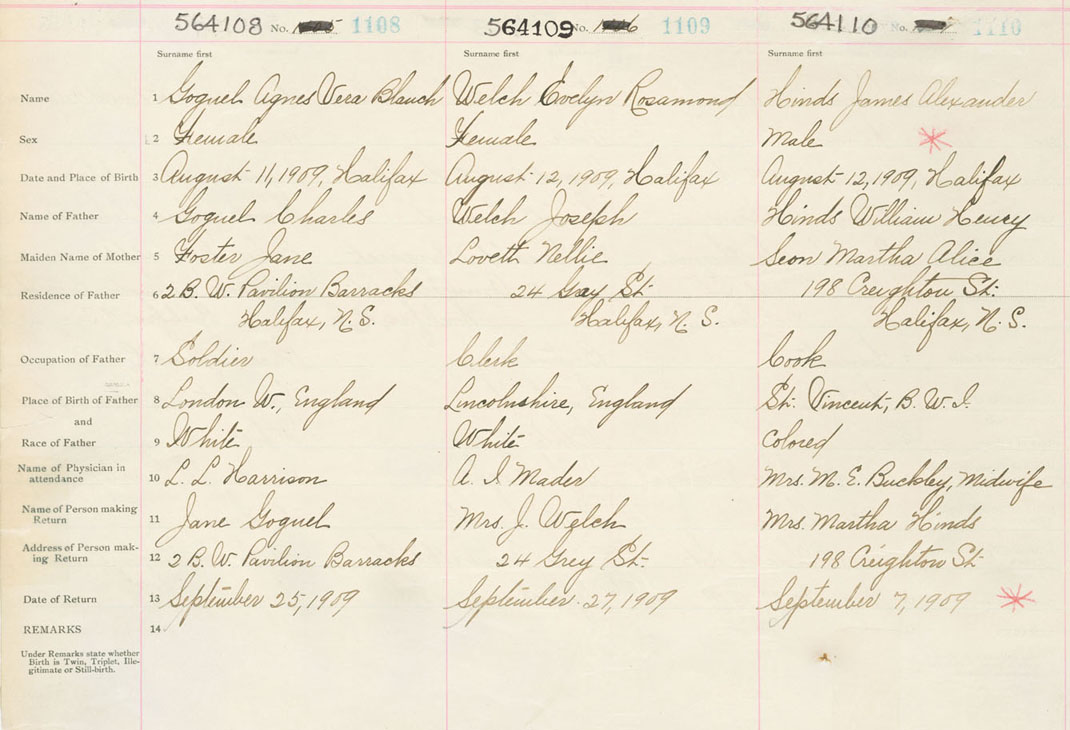 564108 No. 1108 564109 No. 1109 564110 No. 1110
Surname first Surname first Surname first
Name 1 Goguel Agnes Vera Blanch Welch Evelyn Rosamond Hinds James Alexander
Sex 2 Female Female Male
Date and Place of Birth 3 August 11, 1909, Halifax August 12, 1909, Halifax August 12, 1909, Halifax
Name of Father 4 Goguel Charles Welch Joseph Hinds William Henry
Maiden Name of Mother 5 Foster Jane Lovett Nellie Seon Martha Alice
Residence of Father 6 2 B. W. Pavilion Barracks 24 Grey St. 198 Creighton St.
Halifax, N. S. Halifax, N. S. Halifax, N. S.
Occupation of Father 7 Soldier Clerk Cook
Place of Birth of Father 8 London W., England Lincolnshire, England St. Vincent, B. W. I.
and
Race of Father 9 White White Colored
Name of Physician in
attendance 10 L. L. Harrison A. I. Mader Mrs. M. E. Buckley, Midwife
Name of Person making
Return 11 Jane Goguel Mrs. J. Welch Mrs. Martha Hinds
Address of Person mak-
ing Return 12 2 B. W. Pavilion Barracks 24 Grey St. 198 Creighton St.
Date of Return 13 September 25, 1909 September 27, 1909 September 7, 1909
REMARKS 14
Under Remarks state whether
Birth is Twin, Triplet, Ille-
gitimate or Still-birth.